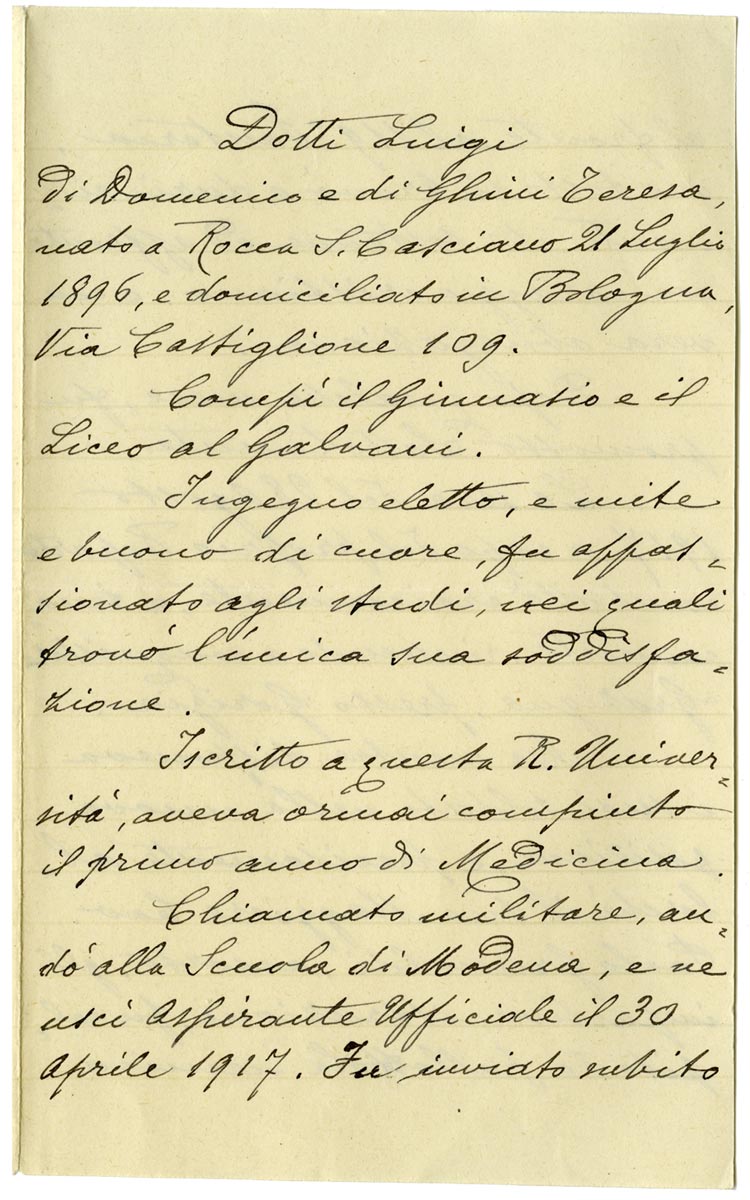 Dotti Luigi
di Domenico e di Ghini Teresa,
nato a Rocca S. Casciano 21 Luglio
1896, e domiciliato in Bologna,
Via Castiglione 109.
Compì il Ginnasio e il
Liceo al Galvani.
Ingegno eletto, e mite
e buono di cuore, fu appas=
sionato agli studi, nei quali
trovò l'unica sua soddisfa=
zione.
Iscritto a questa R. Univer=
sità, aveva ormai compiuto
il primo anno di Medicina.
Chiamato militare, an=
dò alla Scuola di Modena, e ne
uscì Aspirante Ufficiale il 30
Aprile 1917. Fu inviato subito